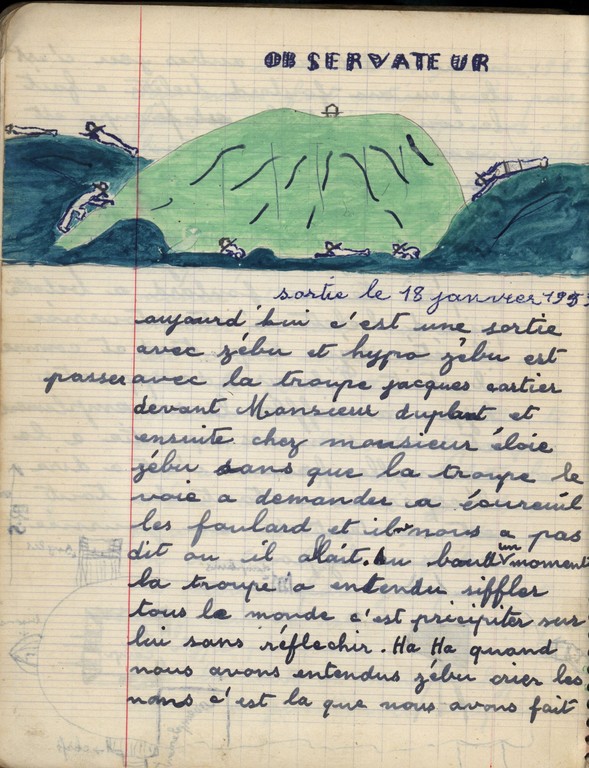 OBSERVATEUR
sortie le 18 janvier 1953
aujourd'hui c'est une sortie
avec zébu et hypo zébu est
passer avec la troupe jacques cartier
devant Monsieur duplant et
ensuite chez monsieur éloie
zébu sans que la troupe le
voie a demander a écureuil
les foulard et il nous a pas
dit ou il allait. Au bout un moment
la troupe a entendu siffler
tous le monde c'est précipiter sur
lui sans réflechir. Ha Ha quand
nous avons entendus zébu crier les
noms c'est la que nous avons fait